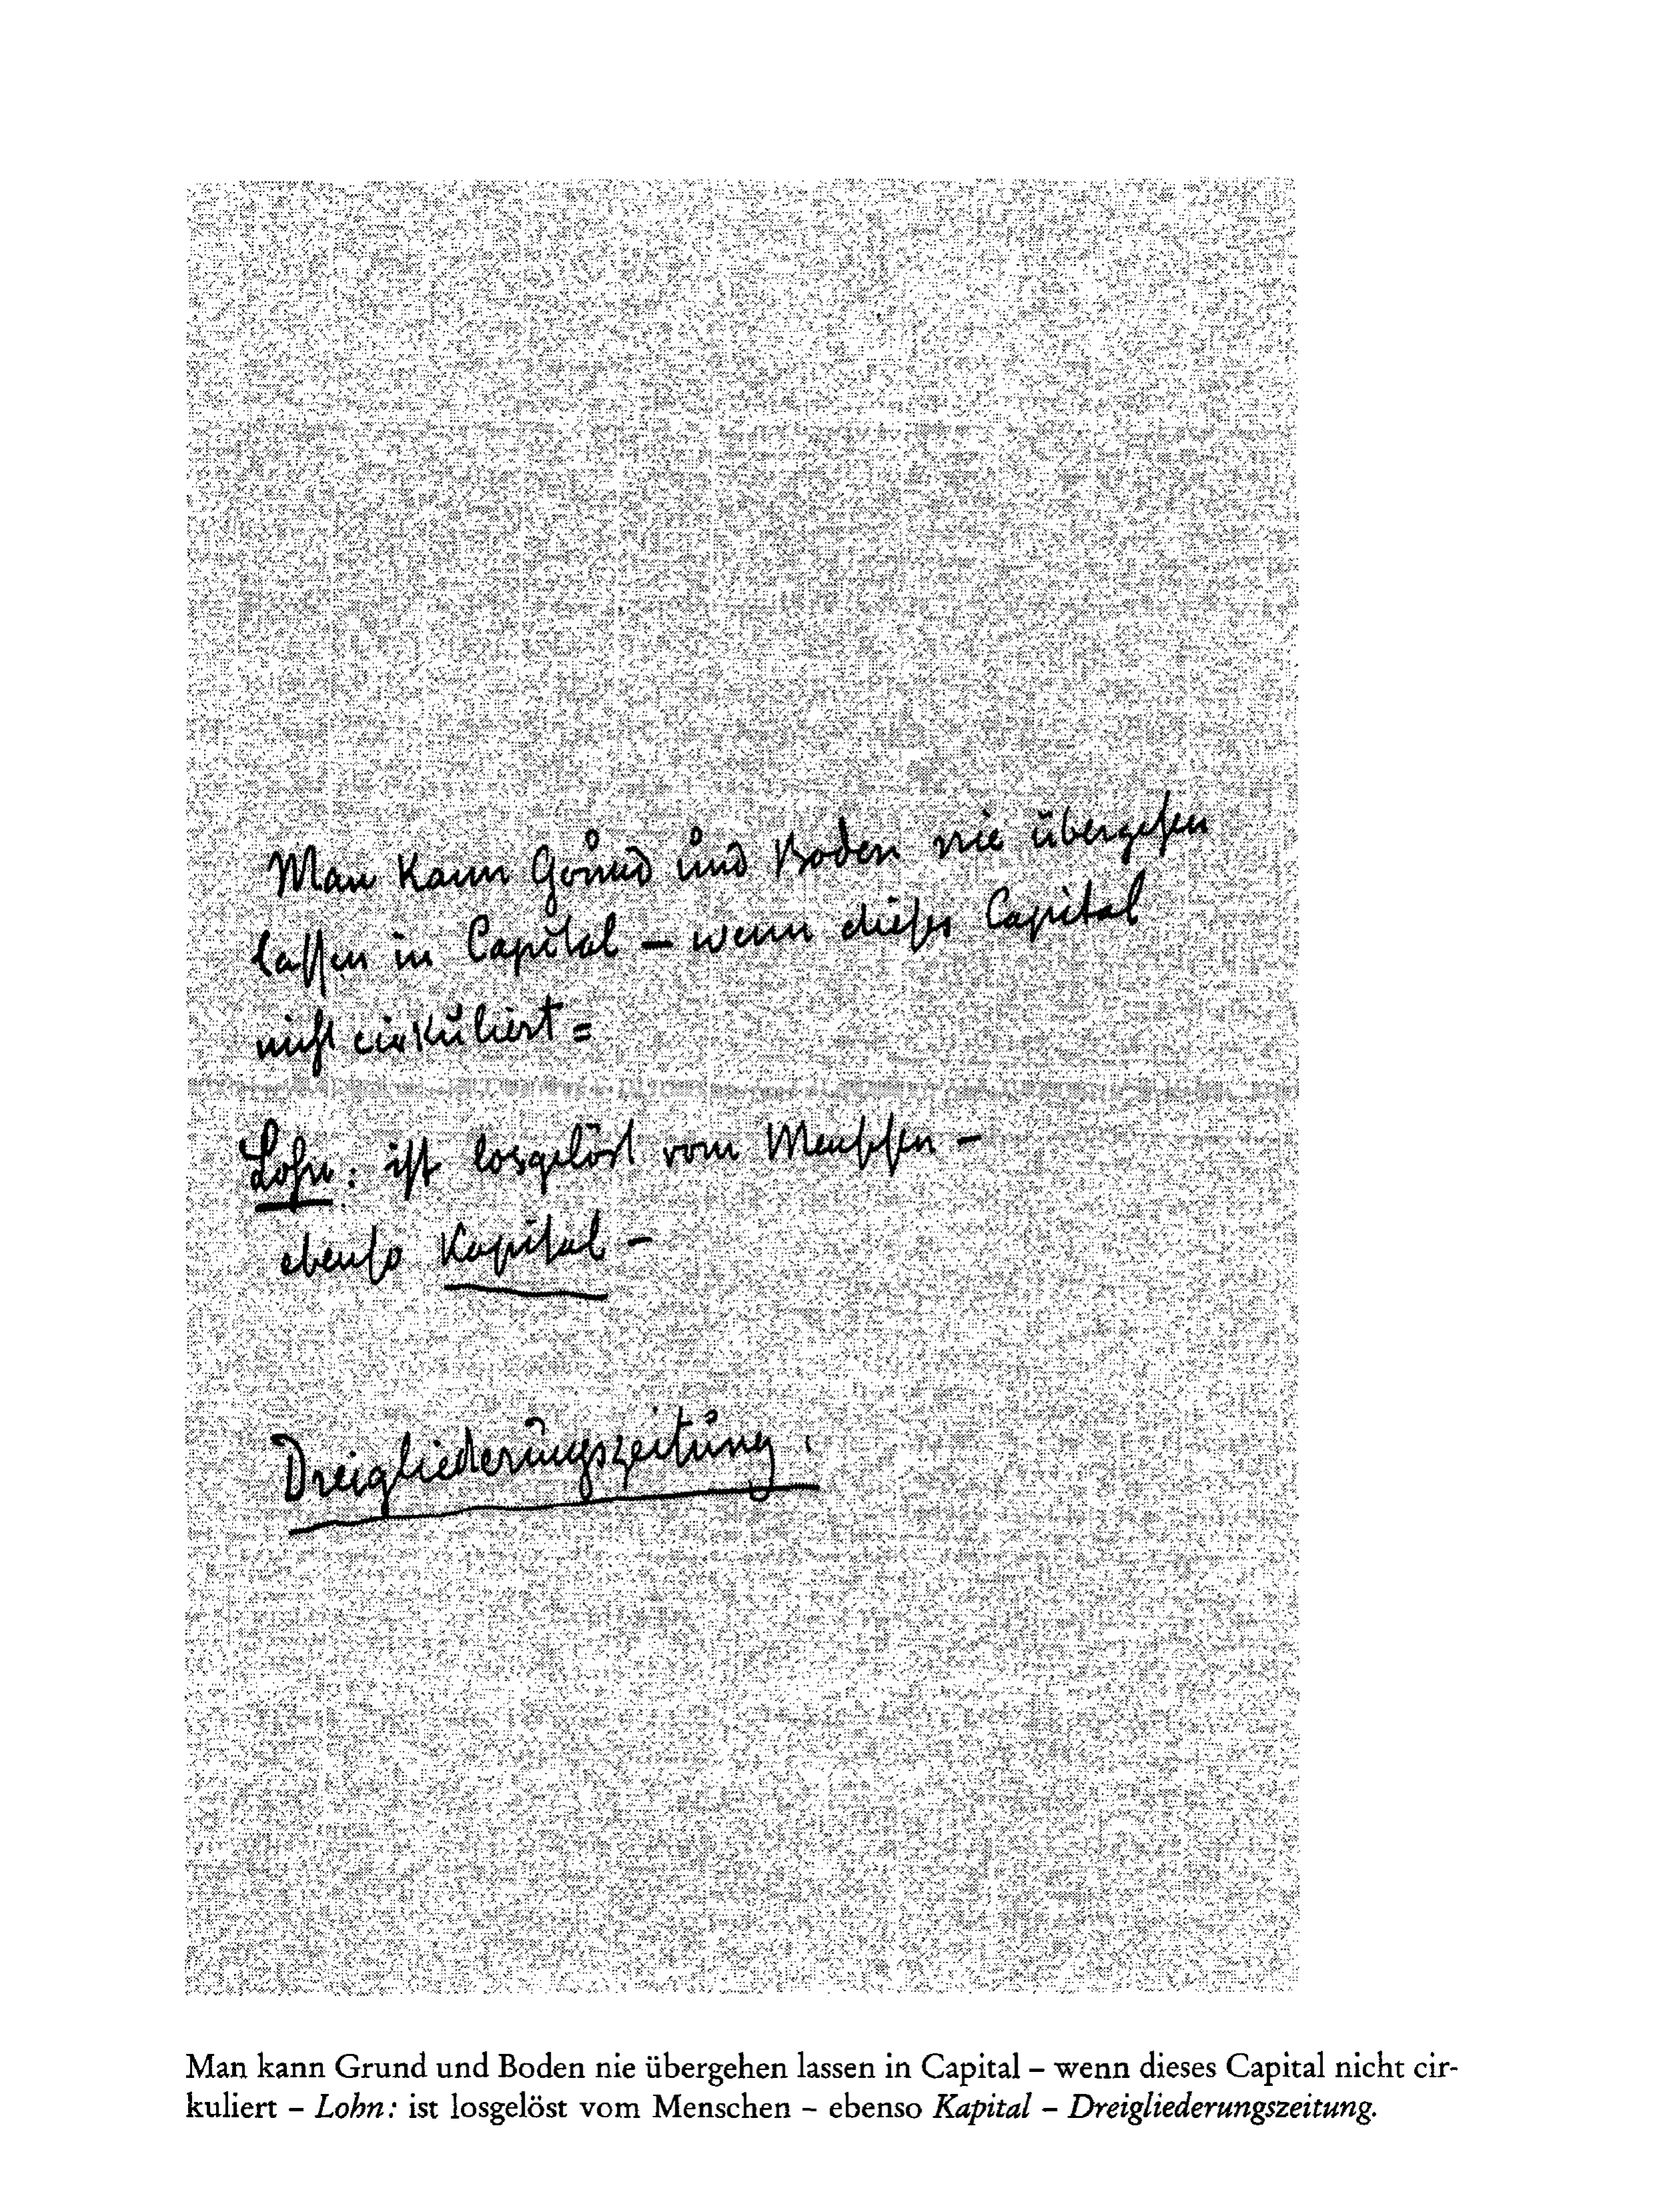 Man kann Grund und Boden nie übergehen
lassen in Capital – wenn dieses Capital
nicht cirkuliert =
Lohn: ist losgelöst vom Menschen –
ebenso Kapital –
Dreigliederungszeitung.
Man kann Grund und Boden nie übergehen lassen in Capital – wenn dieses Capital nicht cir-
kuliert – Lohn: ist losgelöst vom Menschen – ebenso Kapital – Dreigliederungszeitung.